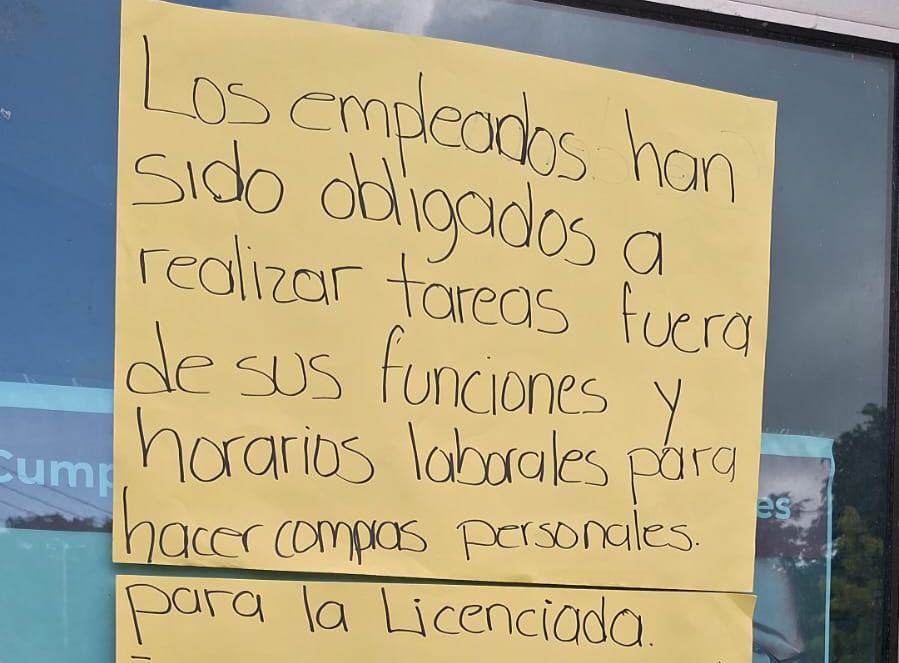 Los empleados han
sido obligados a
realizar tareas fuera
de sus funciones y
horarios laborales para
hacer compras personales.
para la Licenciada.
cump
es